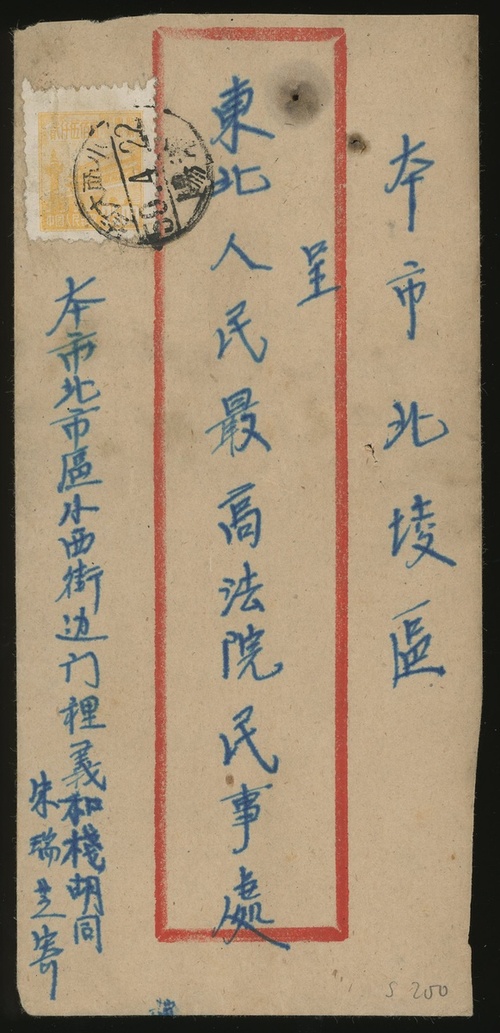 本市北堎區
呈
東北人民最高法院民事處
本市北市區小西街边门裡義和棧胡同
朱瑞芝寄
50.4.22
S 200